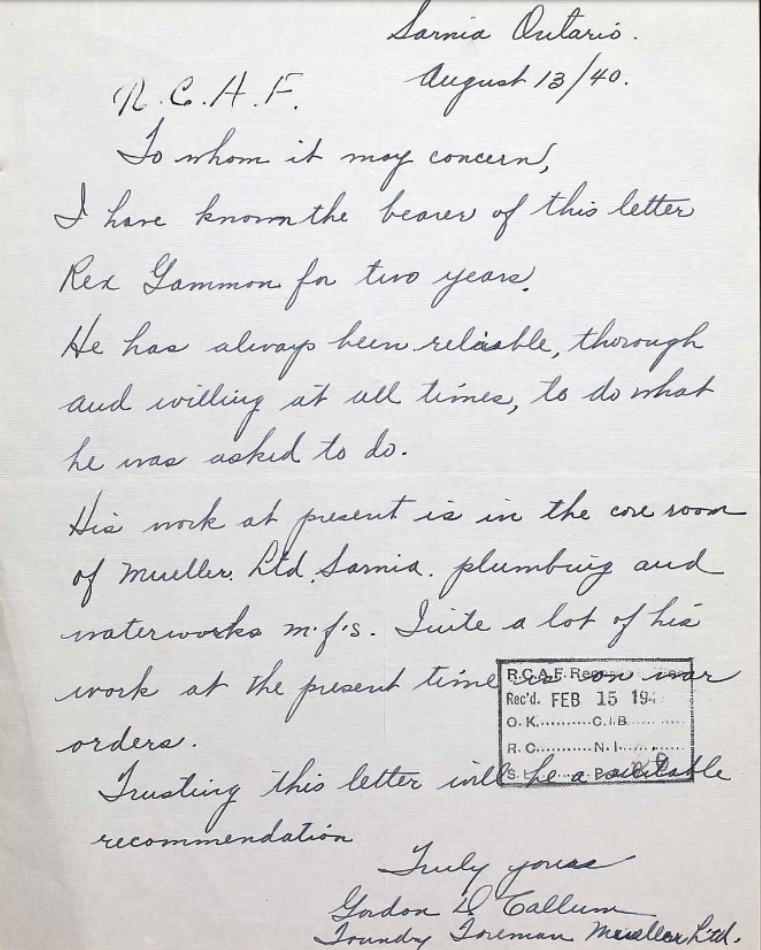 Sarnia Ontario.
August 13/40.
R.C.A.F.
To whom it may concern,
I have known the bearer of this letter
Rex Gammon for two years.
He has always been reliable, thorough
and willing at all times, to do what
he was asked to do.
His work at present is in the core room
of Mueller Ltd, Sarnia. plumbing and
waterworks m.f.s. Quite a lot of his
work at the present time is on war
orders.
Trusting this letter will be a suitable
recommendation
Truly yours
Gordon D Callum
Foundry Foreman Mueller Ltd.
R.C.A.F.
Rec'd. FEB 15 194
O.K..........C.I.B..........
R.C..........N.I..........